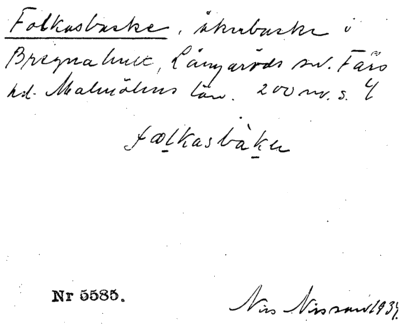 Folkasbacke, åkerbacke i
Bregnahult, Långaröds sn. Färs
hd. Malmöhus län. 200 m. s. 4
fo̤lkasbàken
Nr 5585.
Nils Nilsson 1934.